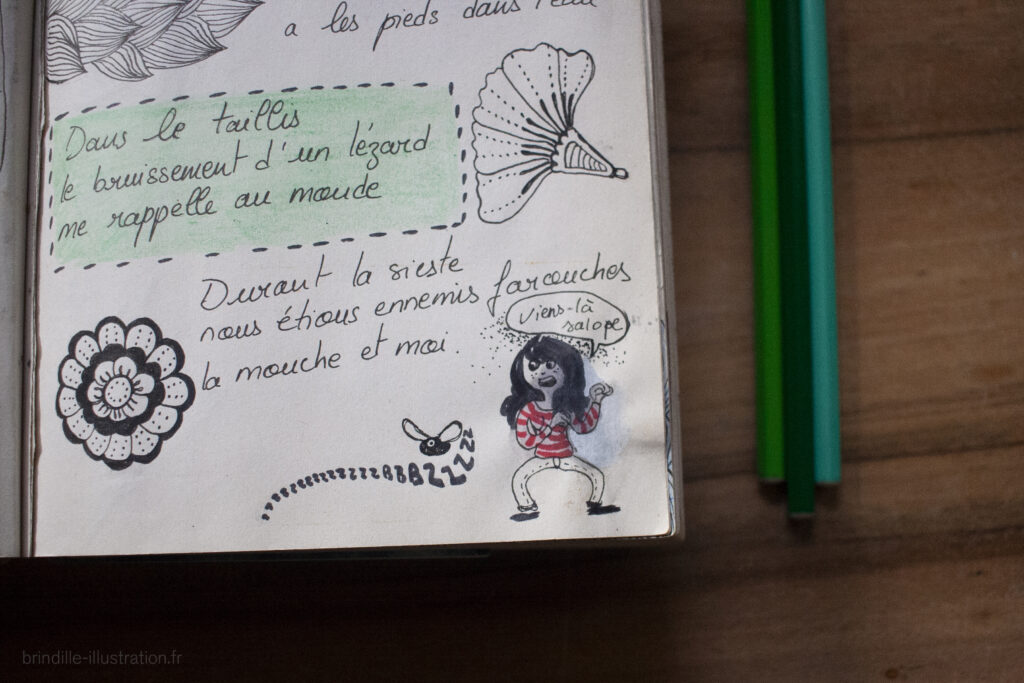 a les pieds dans l'eau
Dans le taillis
le bruissement d'un lézard
me rappelle au monde
Durant la sieste
nous étions ennemis farouches
la mouche et moi.
viens-là
salope
zzzzzzzzzzzzBBBZZZZzzz
brindille-illustration.fr